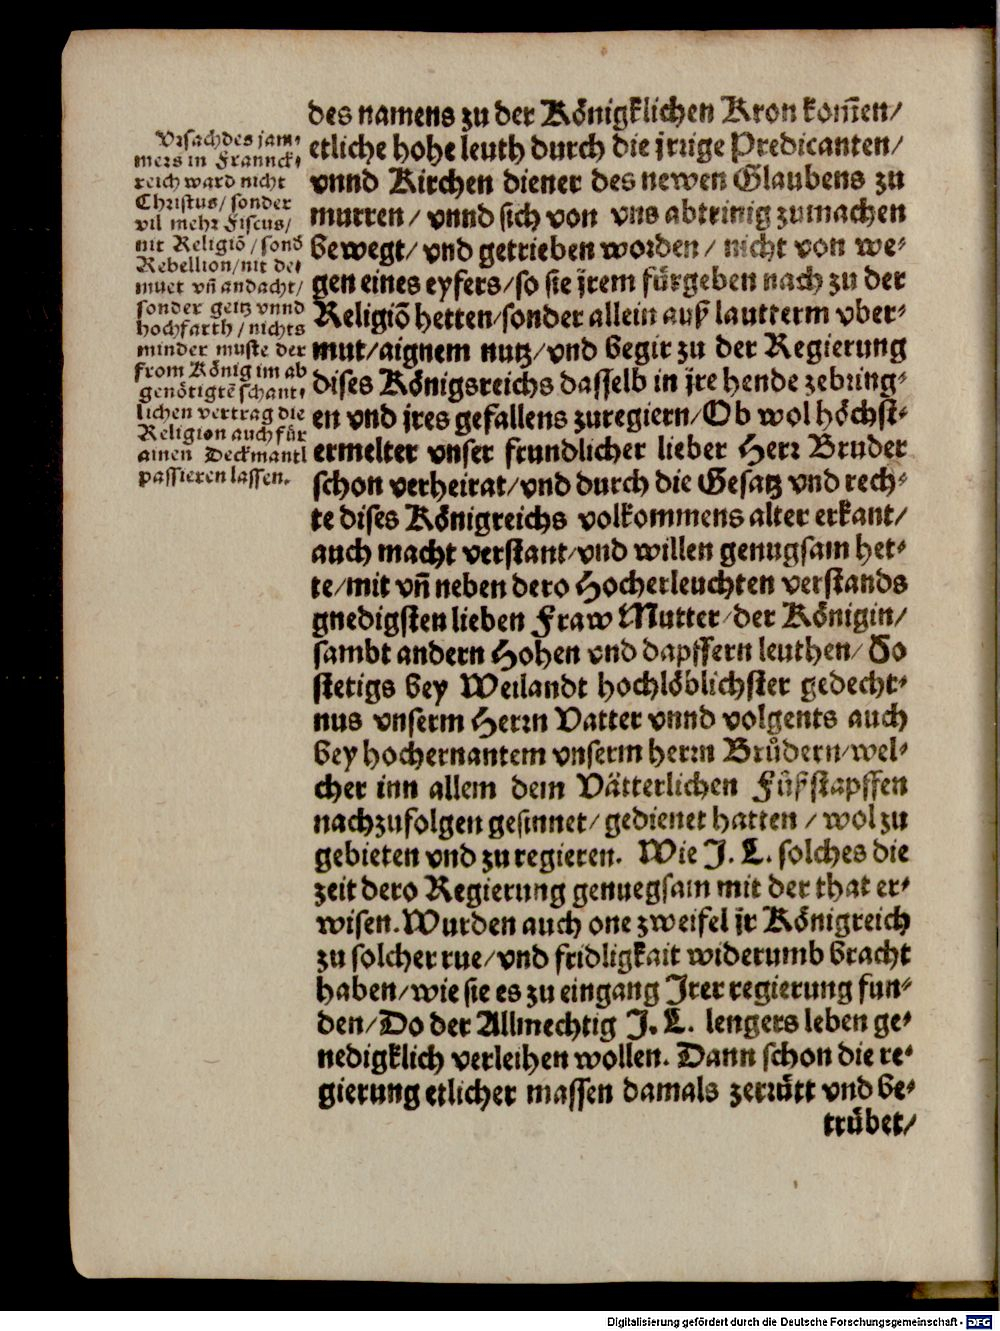 Vrsach des jam⸗
mers in Frannck⸗
reich ward nicht
Christus/ sonder
vil mehr Fiscus/
nit Religiō/ sond
Rebellion/ nit de⸗
muet vn̄ andacht/
sonder geitz vnnd
hochfarth/ nichts
minder muste der
from König im ab
genötigtē schant⸗
lichen vertrag die
Religion auch für
ainen Deckmantl
passieren lassen.
des namens zu der Königklichen Kron kom̄en/
etliche hohe leuth durch die jrrige Predicanten/
vnnd Kirchen diener des newen Glaubens zu
murren/ vnnd sich von vns abtrinig zumachen
bewegt/ vnd getrieben worden/ nicht von we⸗
gen eines eyfers/ so sie jrem fürgeben nach zu der
Religiō hetten/ sonder allein auß lautterm vber⸗
mut/ aignem nutz/ vnd begir zu der Regierung
dises Königsreichs dasselb in jre hende zebring⸗
en vnd jres gefallens zuregiern/ Ob wol höchst⸗
ermelter vnser frundlicher lieber Herr Bruder
schon verheirat/ vnd durch die Gesatz vnd rech⸗
te dises Königreichs volkommens alter erkant/
auch macht verstant/ vnd willen genugsam het⸗
te/ mit vn̄ neben dero Hocherleuchten verstands
gnedigsten lieben Fraw Mutter/ der Königin/
sambt andern Hohen vnd dapffern leuthen/ So
stetigs bey Weilandt hochlöblichster gedecht⸗
nus vnserm Herrn Vatter vnnd volgents auch
bey hochernantem vnserm herrn Brůdern/ wel⸗
cher inn allem dem Vätterlichen Fůßstapffen
nachzufolgen gesinnet/ gedienet hatten/ wol zu
gebieten vnd zu regieren. Wie J. L. solches die
zeit dero Regierung genuegsam mit der that er⸗
wisen. Wurden auch one zweifel jr Königreich
zu solcher rue/ vnd fridligkait widerumb bracht
haben/ wie sie es zu eingang Jrer regierung fun⸗
den/ Do der Allmechtig J. L. lengers leben ge⸗
nedigklich verleihen wollen. Dann schon die re⸗
gierung etlicher massen damals zerrütt vnd be⸗
trübet/
Digitalisierung gefördert durch die Deutsche Forschungsgemeinschaft - DFG